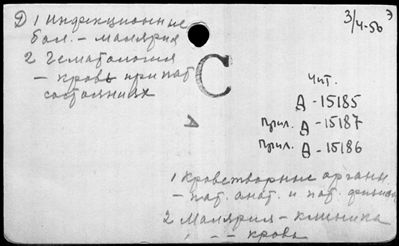 Д) 1 Инфекционные
бол. - малярия
2 Гематология
- кровь при пат.
состояниях
3/4-56
Э
С
Чит.
А-15185
Прил. А-15187
Прил. А-15186
А
1 Кроветворные органы
- пат. анат. и пат. физиол
2 Малярия - клиника
- - кровь